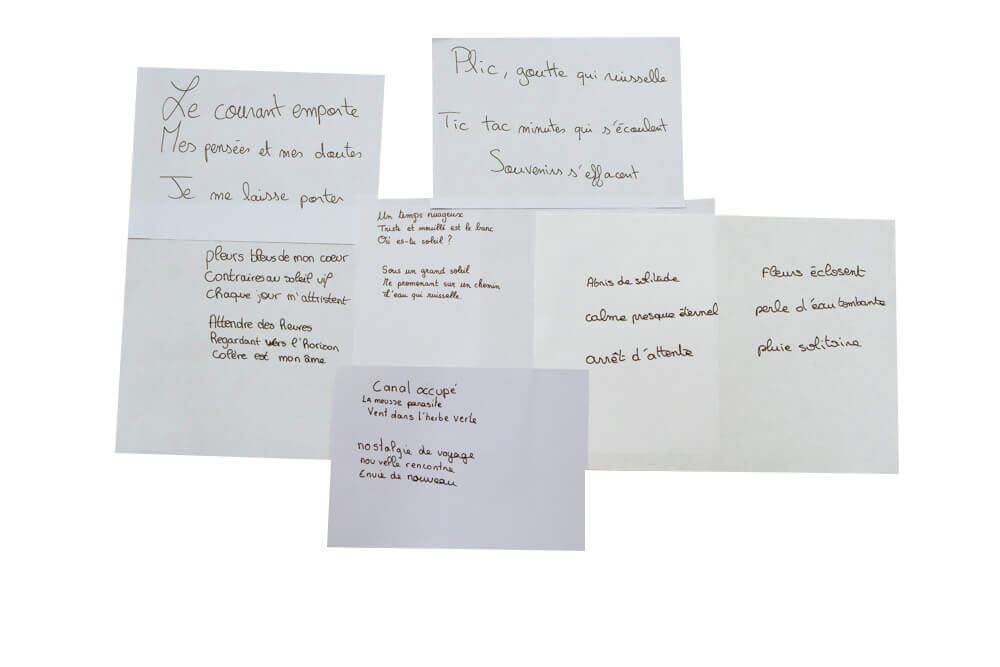 Le courant emporte
Mes pensées et mes doutes
Je me laisse porter
Plic, goutte qui ruisselle
Tic tac minutes qui s'écoulent
Souvenirs s'effacent
pleurs bleus de mon coeur
Contraires au soleil vif
Chaque jour m'attristent
Attendre des heures
Regardant vers l'horizon
Colère est mon âme
Un temps nuageux
Triste et mouillé est le banc
Où es-tu soleil ?
Sous un grand soleil
Me promenant sur un chemin
d'eau qui ruisselle
Abris de solitude
calme presque éternel
arrêt d'attente
Fleurs éclosent
perle d'eau tombante
pluie solitaire
Canal occupé
La mousse parasite
Vent dans l'herbe verte
nostalgie de voyage
nouvelle rencontre
Envie de nouveau